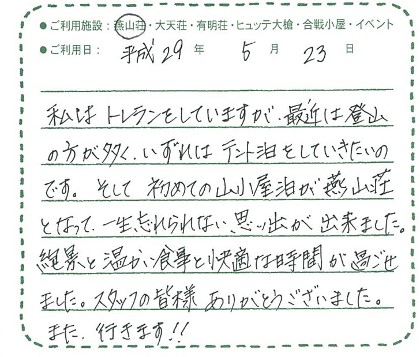 ●ご利用施設：燕山荘・大天荘・有明荘・ヒュッテ大槍・合戦小屋・イベント
●ご利用日： 平成 29 年 5 月 23 日
私は トレランをしていますが、最近は登山
の方が多く、いずれは テント泊をしていきたいの
です。そして 初めての山小屋泊が燕山荘
となって、一生忘れられない思い出が 出来ました。
絶景と温かい食事と快適な時間が過ごせ
ました。スタッフの皆様 ありがとうございました。
また、行きます!!